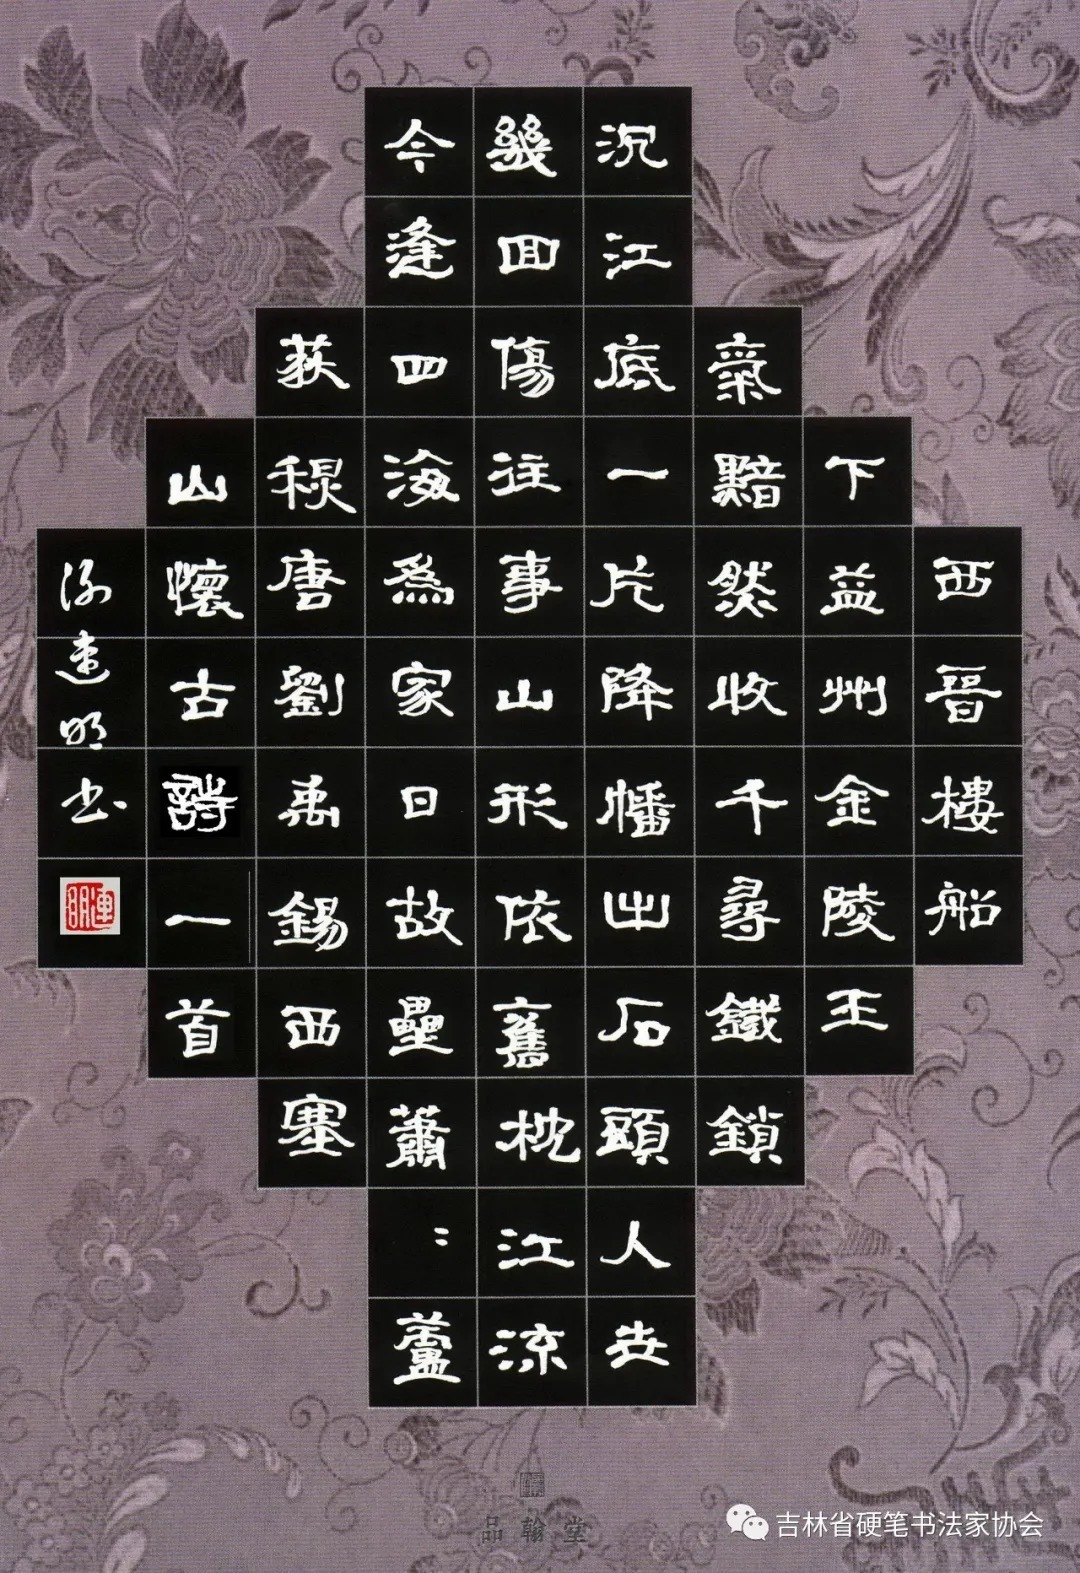 西晉樓船
下益州金陵王
氣黯然收千尋鐵鎖
沉江底一片降幡出石頭人世
幾回傷往事山形依舊枕江流
今逢四海爲家日故壘蕭〻蘆
荻秋唐劉禹錫西塞
山懷古詩一首
連明书
連明
品翰堂
吉林省硬笔书法家协会